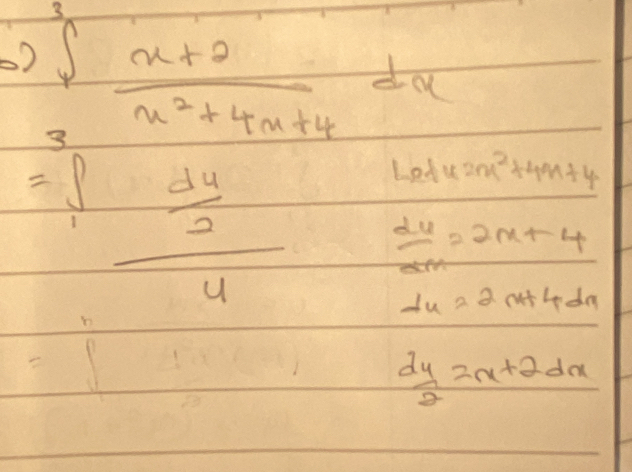 b) ∫₁³ (x+2)/(x²+4x+4) dx
= ∫₁³ (du/2)/u
Let u = x²+4x+4
du/dx = 2x+4
du = 2x+4dx
= ∫
du/2 = x+2dx